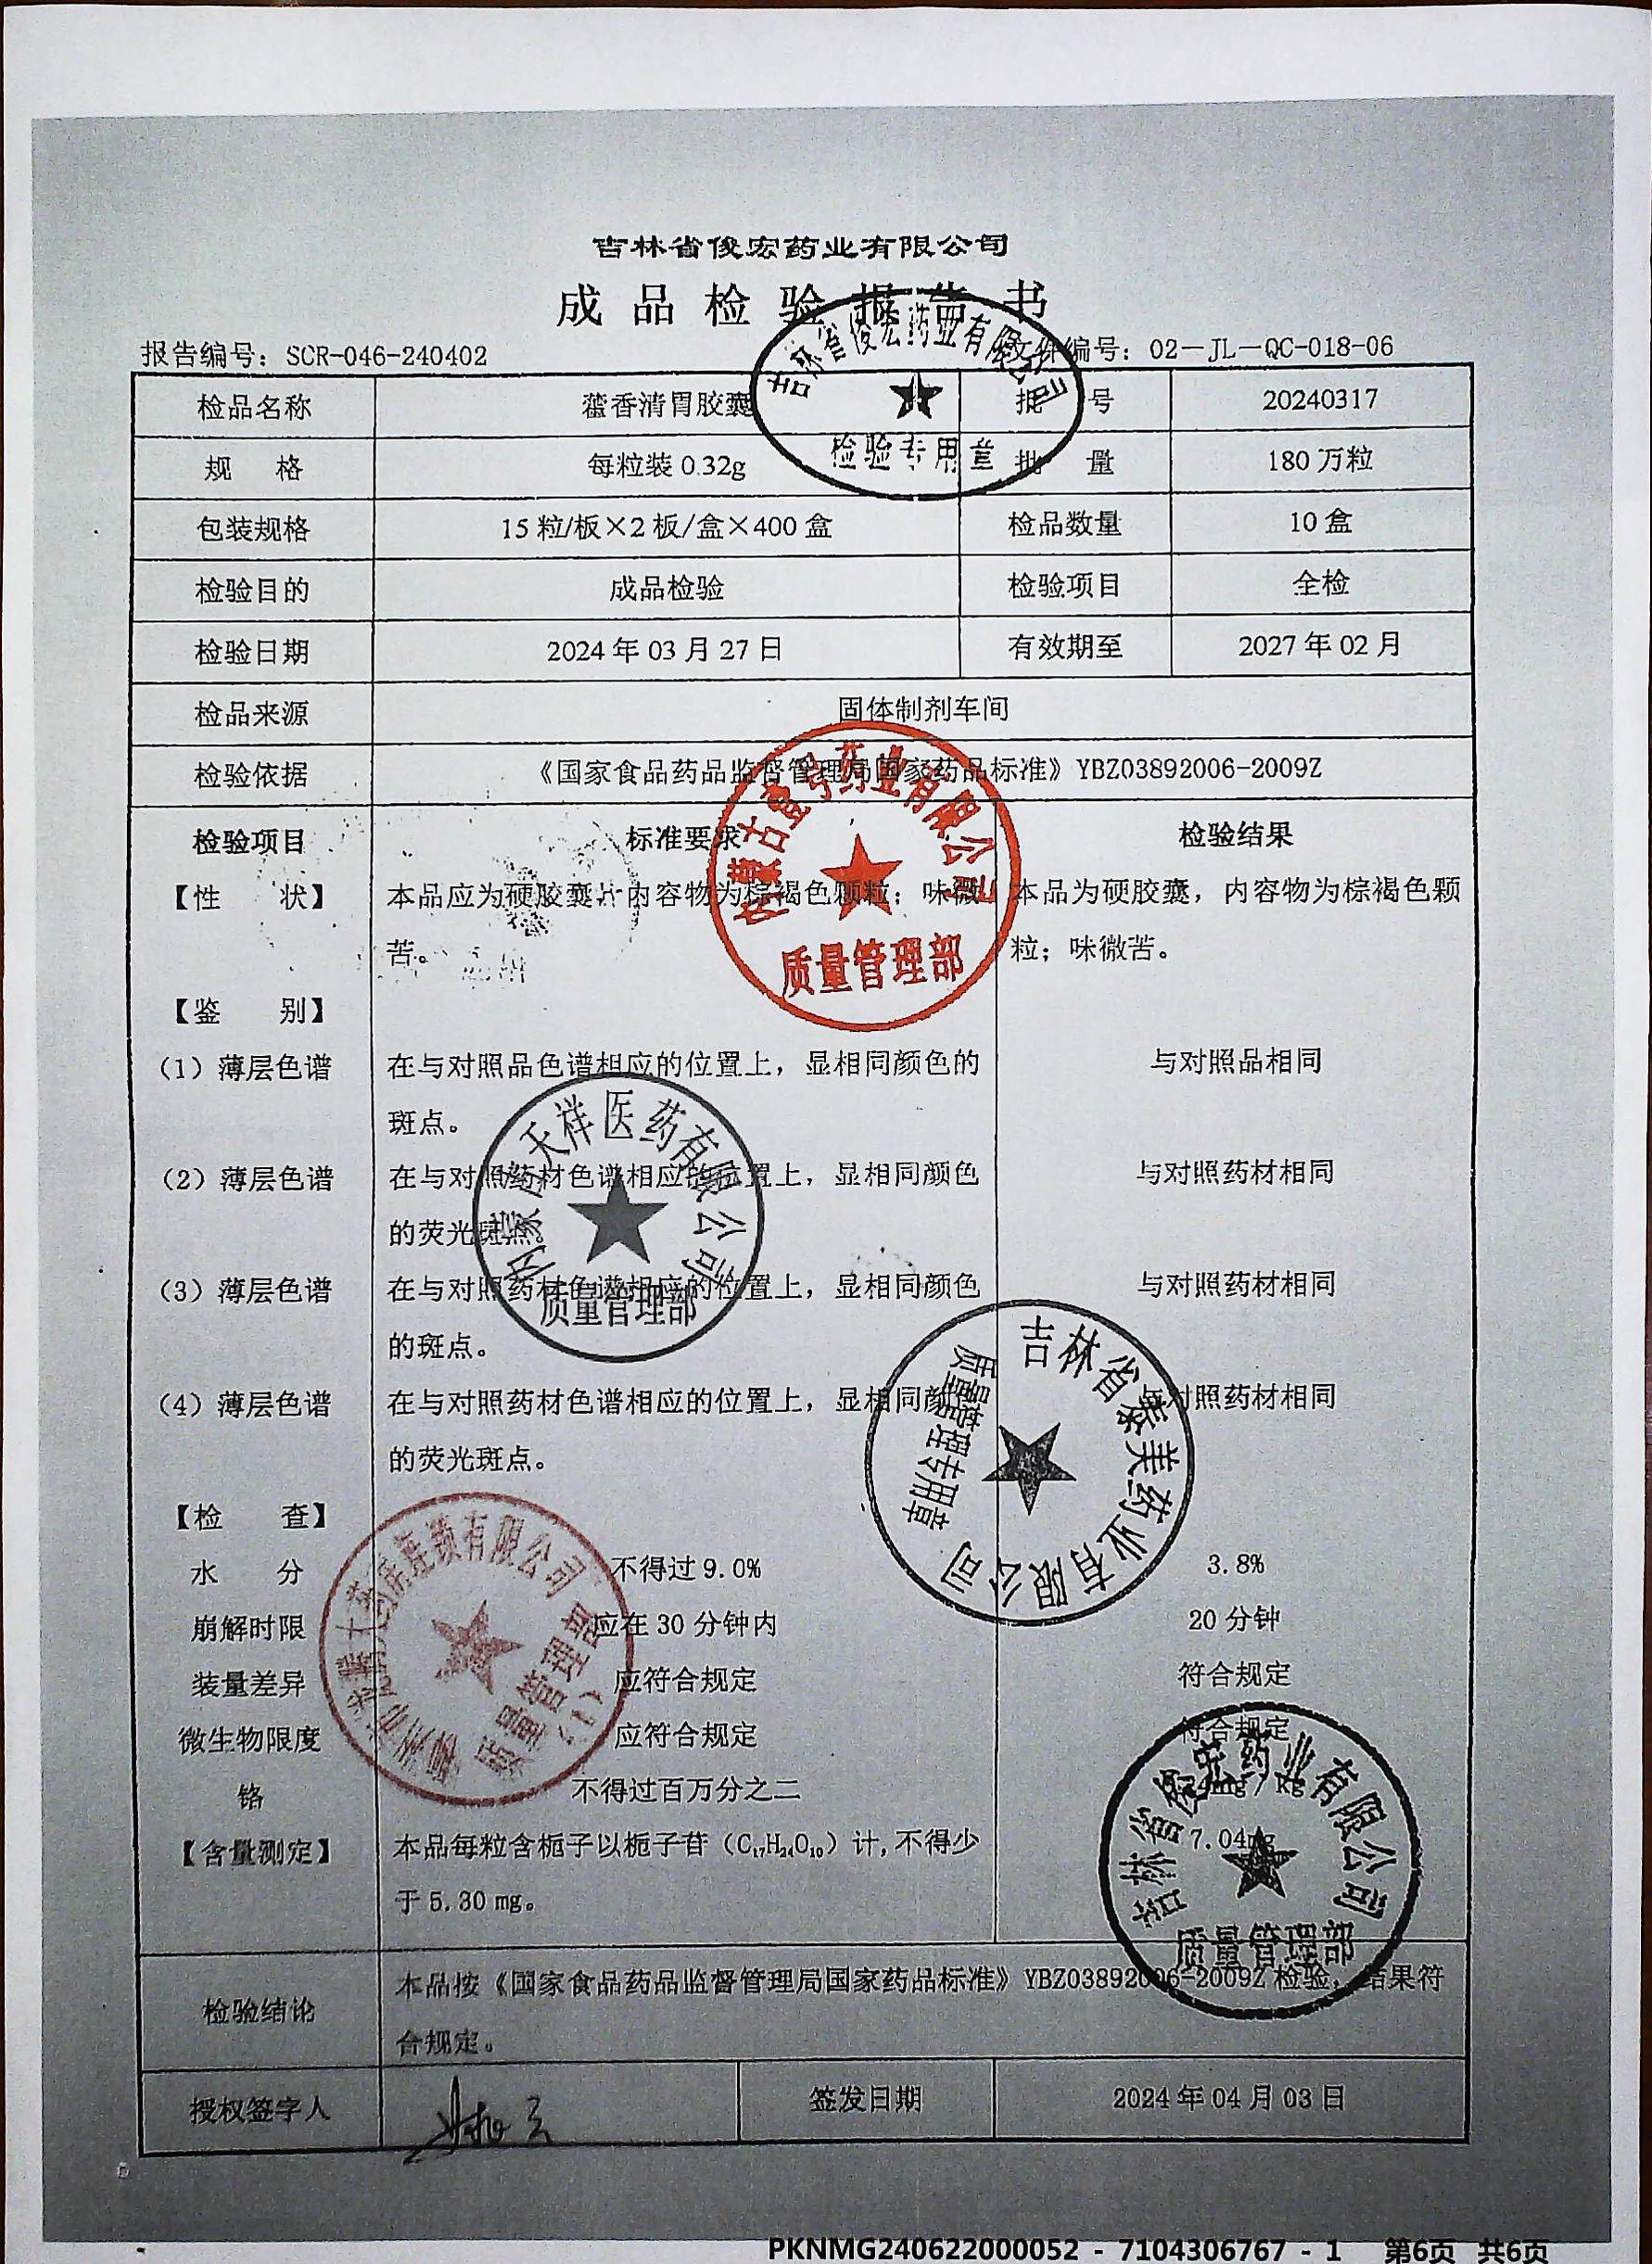 吉林省俊宏药业有限公司
成品检验报告书
报告编号：SCR-046-240402 文件编号：02－JL－QC-018-06
检品名称 藿香清胃胶囊 批 号 20240317
规 格 每粒装 0.32g 批 量 180 万粒
包装规格 15 粒/板×2 板/盒×400 盒 检品数量 10 盒
检验目的 成品检验 检验项目 全检
检验日期 2024 年 03 月 27 日 有效期至 2027 年 02 月
检品来源 固体制剂车间
检验依据 《国家食品药品监督管理局国家药品标准》YBZ03892006-2009Z
检验项目 标准要求 检验结果
【性 状】 本品应为硬胶囊，内容物为棕褐色颗粒；味微 本品为硬胶囊，内容物为棕褐色颗
苦。 粒；味微苦。
【鉴 别】
（1）薄层色谱 在与对照品色谱相应的位置上，显相同颜色的 与对照品相同
斑点。
（2）薄层色谱 在与对照药材色谱相应的位置上，显相同颜色 与对照药材相同
的荧光斑点。
（3）薄层色谱 在与对照药材色谱相应的位置上，显相同颜色 与对照药材相同
的斑点。
（4）薄层色谱 在与对照药材色谱相应的位置上，显相同颜色 与对照药材相同
的荧光斑点。
【检 查】
水 分 不得过 9.0% 3.8%
崩解时限 应在 30 分钟内 20 分钟
装量差异 应符合规定 符合规定
微生物限度 应符合规定 符合规定
铬 不得过百万分之二 mg / Kg
【含量测定】 本品每粒含栀子以栀子苷（C₁₇H₂₄O₁₀）计, 不得少 7.04mg
于 5.30 mg。
检验结论 本品按《国家食品药品监督管理局国家药品标准》YBZ03892006-2009Z 检验，结果符
合规定。
授权签字人 签发日期 2024 年 04 月 03 日
吉林省俊宏药业有限公司
检验专用章
内蒙古壹号药业有限公司
质量管理部
内蒙古天祥医药有限公司
质量管理部
吉林省泰美药业有限公司
质量管理专用章
大药房连锁有限公司
质量管理部
吉林省俊宏药业有限公司
质量管理部
PKNMG240622000052 - 7104306767 - 1 第6页 共6页